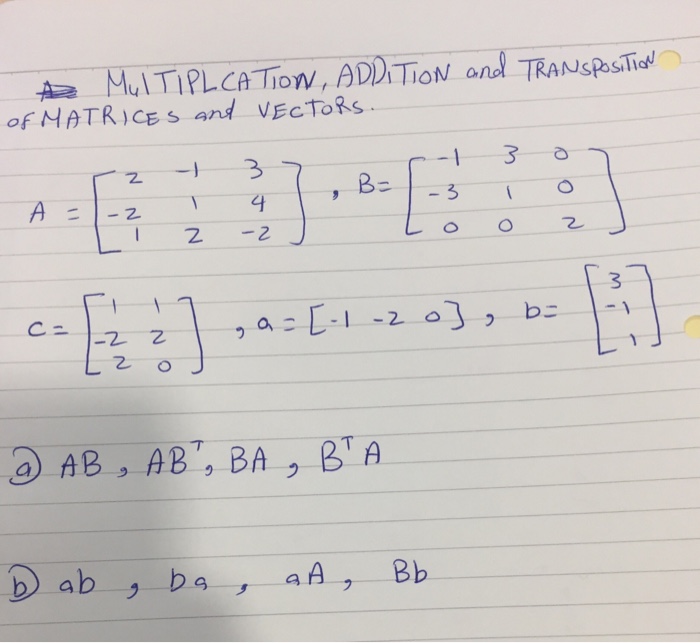 MULTIPLCATION, ADDITION and TRANSPOSITION
OF MATRICES and VECTORS.
A = [2 -1 3; -2 1 4; 1 2 -2], B = [-1 3 0; -3 1 0; 0 0 2]
C = [1 1; -2 2; 2 0], a = [-1 -2 0], b = [3; -1; 1]
a) AB, ABᵀ, BA, BᵀA
b) ab, ba, aA, Bb